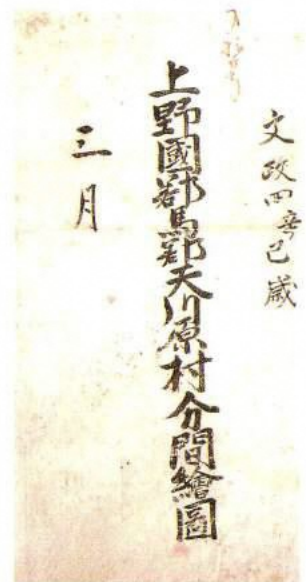 文政四辛巳歳
上野國郡馬郡天川原村分間繪圖
三月